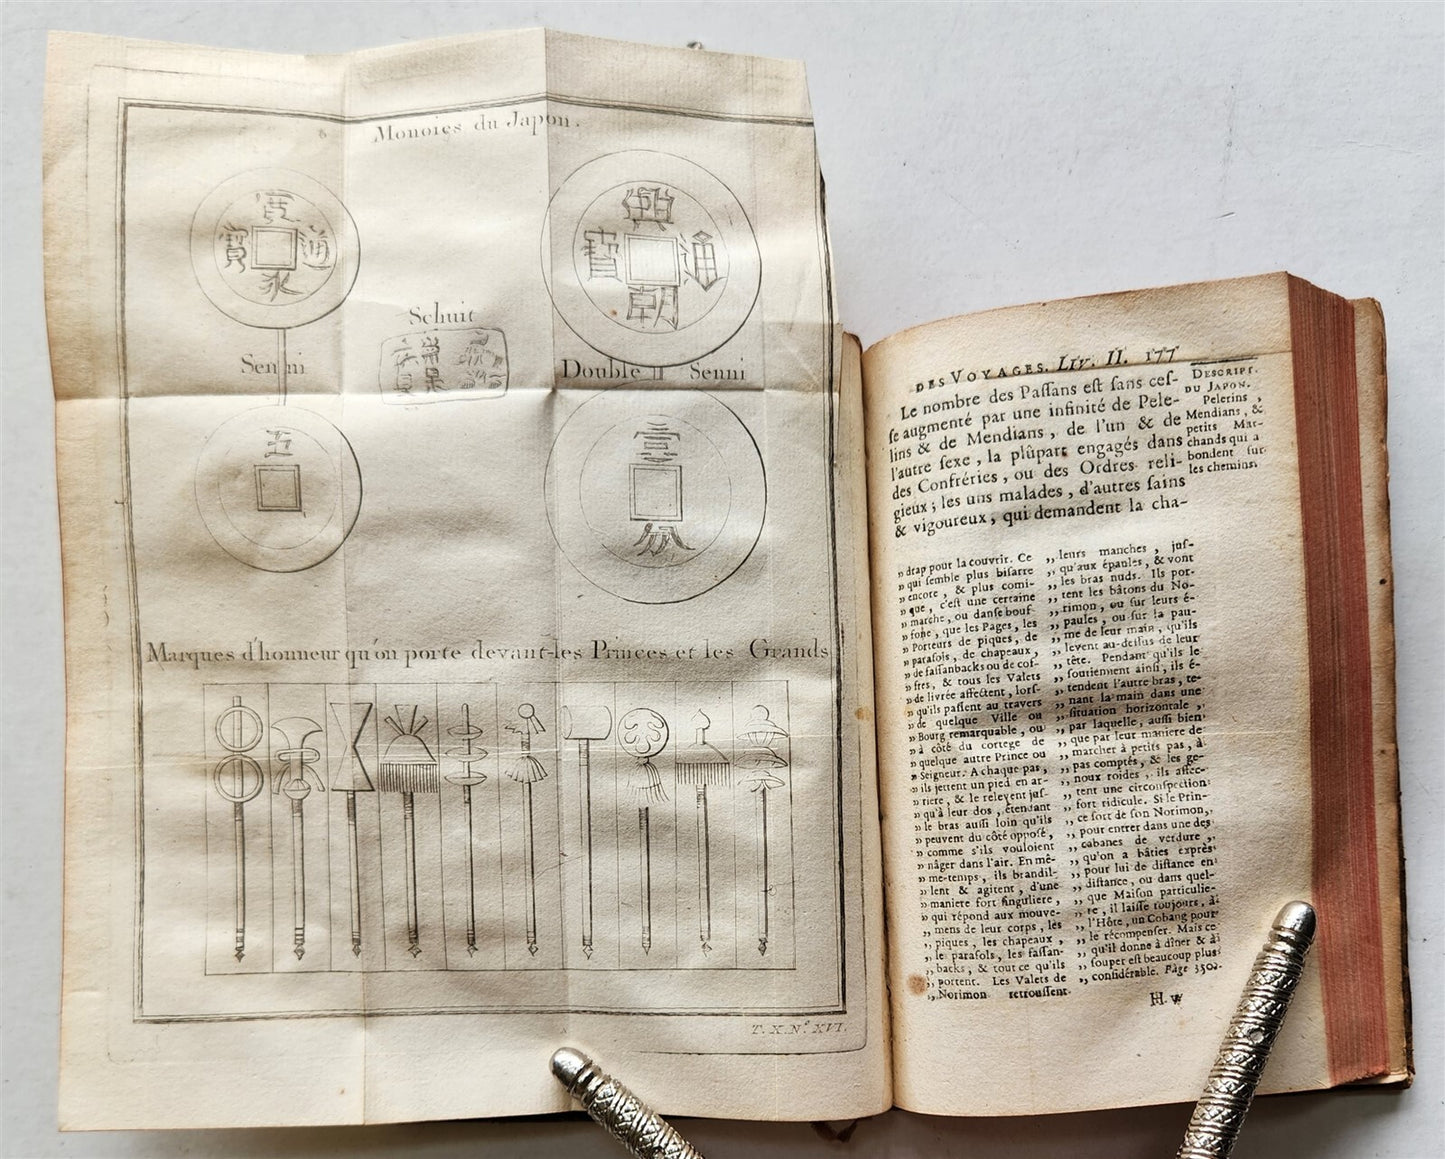 Monoies du Japon.
寛
寶 通
永
興
寶 通
朝
Schuit
Senni
Double Senni
五
壹
Marques d'honneur qu'on porte devant-les Princes et les Grands
T. X. Nº. XVI.
DES VOYAGES. LIV. II. 177
DESCRIPT.
DU JAPON.
Pelerins,
Mendians, &
petits Mar-
chands qui a
bondent sur
les chemins.
Le nombre des Passans est sans ces-
se augmenté par une infinité de Pele-
lins & de Mendians, de l'un & de
l'autre sexe, la plûpart engagés dans
des Confréries, ou des Ordres reli-
gieux; les uns malades, d'autres sains
& vigoureux, qui demandent la cha-
„ drap pour la couvrir. Ce
„ qui semble plus bisarre
„ encore, & plus comi-
„ que, c'est une certaine
„ marche, ou danse bouf-
„ fone, que les Pages, les
„ Porteurs de piques, de
„ parasols, de chapeaux,
„ de fassanbacks ou de cof-
„ fres, & tous les Valets
„ de livrée affectent, lors-
„ qu'ils passent au travers
„ de quelque Ville ou
„ Bourg remarquable, ou
„ à côté du cortege de
„ quelque autre Prince ou
„ Seigneur. A chaque pas,
„ ils jettent un pied en ar-
„ riere, & le relevent jus-
„ qu'à leur dos, étendant
„ le bras aussi loin qu'ils
„ peuvent du côté opposé,
„ comme s'ils vouloient
„ nâger dans l'air. En mê-
„ me-temps, ils brandil-
„ lent & agitent, d'une
„ maniere fort singuliere,
„ qui répond aux mouve-
„ mens de leur corps, les
„ piques, les chapeaux,
„ les parasols, les fassan-
„ backs, & tout ce qu'ils
„ portent. Les Valets de
„ Norimon retroussent
„ leurs manches, jus-
„ qu'aux épaules, & vont
„ les bras nuds. Ils por-
„ tent les bâtons du No-
„ rimon, ou sur leurs é-
„ paules, ou sur la pau-
„ me de leur main, qu'ils
„ levent au-dessus de leur
„ tête. Pendant qu'ils le
„ soutiennent ainsi, ils é-
„ tendent l'autre bras, te-
„ nant la main dans une
„ situation horizontale,
„ par laquelle, aussi bien
„ que par leur maniere de
„ marcher à petits pas, à
„ pas comptés, & les ge-
„ noux roides, ils affec-
„ tent une circonspection
„ fort ridicule. Si le Prin-
„ ce sort de son Norimon,
„ pour entrer dans une des
„ cabanes de verdure,
„ qu'on a bâties exprès
„ pour lui de distance en
„ distance, ou dans quel-
„ que Maison particulie-
„ re, il laisse toujours, à
„ l'Hôte, un Cobang pour
„ le récompenser. Mais ce
„ qu'il donne à dîner & à
„ souper est beaucoup plus
„ considérable. Page 350.
H. v